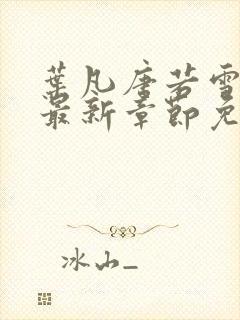 葉凡唐若雪
最新章節免
冰山_